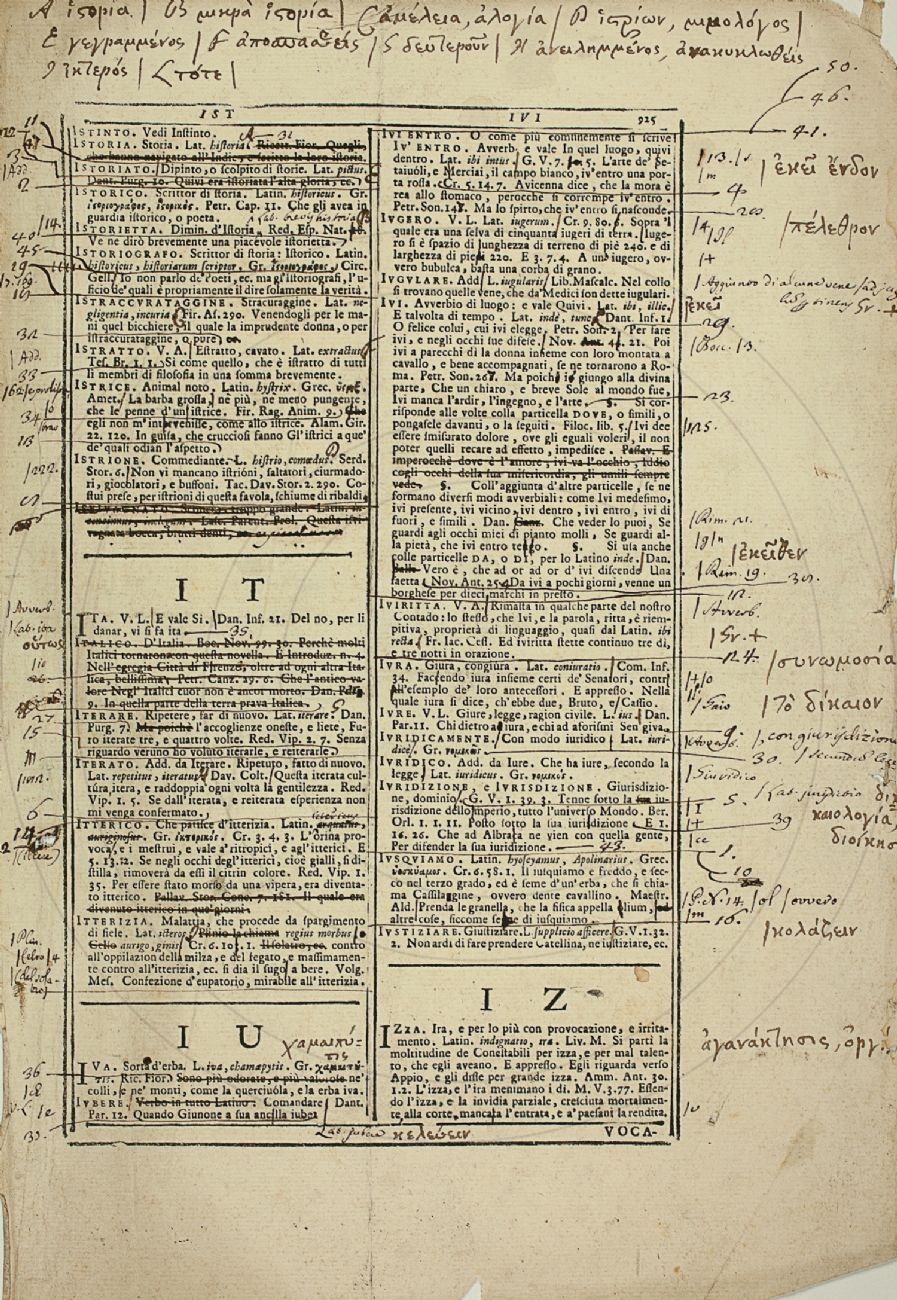 Α ἱστορία | Β μικρὰ ἱστορία | C ἀμέλεια, ἀλογία | D ἱστρίων, μιμολόγος |
E γεγραμμένος | F ἀποσπασθείς | δευτεροῦν | ἀνειλημμένος, ἀνακυκλωθείς
ἰκτερός | τότε |
IST
ISTINTO. Vedi Instinto.
ISTORIA. Storia. Lat. historia. Ricett. Fior. Quegli,
che hanno navigato all'Indie, e scritto le loro istorie.
ISTORIATO. Dipinto, o scolpito di storie. Lat. pictus.
Dant. Purg. 10. Quivi era istoriata l'alta gloria, ec.
ISTORICO. Scrittor di storia. Latin. historicus. Gr.
ἱστοριογράφος, ἱστορικός. Petr. Cap. 11. Che gli avea in
guardia istorico, o poeta.
ISTORIETTA. Dimin. d'Istoria. Red. Esp. Nat.
Ve ne dirò brevemente una piacevole istorietta.
ISTORIOGRAFO. Scrittor di storia: Istorico. Latin.
historicus, historiarum scriptor. Gr. ἱστοριογράφος. Circ.
Gell. Io non parlo de' Poeti, ec. ma gl'istoriografi, l'u-
ficio de' quali è propriamente il dire solamente la verità.
ISTRACCURATAGGINE. Stracuraggine. Lat. ne-
gligentia, incuria. Fir. As. 290. Venendogli per le ma-
ni quel bicchiere, il quale la imprudente donna, o per
istraccurataggine, o pure
ISTRATTO. V. A. Estratto, cavato. Lat. extractus.
Tes. Br. 1. 1. Sì come quello, che è istratto di tutti
li membri di filosofia in una somma brevemente.
ISTRICE. Animal noto, Latin. hystrix. Grec. ὕστριξ.
Amet. La barba grossa, nè più, nè meno pungente,
che le penne d'un istrice. Fir. Rag. Anim. 9. Che
egli non m'intervenisse, come allo istrice. Alam. Gir.
22. 120. In guisa, che crucciosi fanno Gl'istrici a que'
de' quali odian l'aspetto.
ISTRIONE. Commediante. L. histrio, comœdus. Serd.
Stor. 6. Non vi mancano istrioni, saltatori, ciurmado-
ri, giocolatori, e buffoni. Tac. Dav. Stor. 2. 290. Co-
stui prese, per istrioni di questa favola, schiume di ribaldi,
I T
ITA. V. L. E vale Sì. Dan. Inf. 21. Del no, per li
danar, vi si fa ita 35.
ITALICO. D'Italia. Boc. Nov. 99. 50. Perchè molti
Italici tornarono con questa novella. E Introduz. n. 4.
Nell'egregia Città di Firenze, oltre ad ogni altra Ita-
lica, bellissima. Petr. Canz. 29. 6. Che l'antico va-
lore Negl'Italici cuor non è ancor morto. Dan. Pdis.
9. In quella parte della terra prava Italica.
ITERARE. Ripetere, far di nuovo. Lat. iterare. Dan.
Purg. 7. Ma poichè l'accoglienze oneste, e liete, Fu-
ro iterate tre, e quattro volte. Red. Vip. 2. 7. Senza
riguardo veruno ho voluto iterarle, e reiterarle.
ITERATO. Add. da Iterare. Ripetuto, fatto di nuovo.
Lat. repetitus, iteratus. Dav. Colt. Questa iterata cul-
tura, itera, e raddoppia ogni volta la gentilezza. Red.
Vip. 1. 5. Se dall'iterata, e reiterata esperienza non
mi venga confermato.
ITTERICO. Che patisce d'itterizia. Latin. arquatus,
auriginosus. Gr. ἰκτερικός. Cr. 3. 4. 3. L'orina pro-
voca, e i mestrui, e vale a' ritropici, e agl'itterici. E
5. 13. 12. Se negli occhi degl'itterici, cioè gialli, si di-
stilla, rimoverà da essi il citrin colore. Red. Vip. 1.
35. Per essere stato morso da una vipera, era diventa-
to itterico. Pallav. Stor. Conc. 7. 181. Il quale era
divenuto itterico in que' giorni
ITTERIZIA. Malattia, che procede da spargimento
di fiele. Lat. icterus, Plinio la chiama regius morbus,
Celso aurigo, ginis. Cr. 6. 105. 1. Il solatro, ec. contro
all'oppilazion della milza, e del fegato, e massimamen-
te contro all'itterizia, ec. si dia il sugo a bere. Volg.
Mes. Confezione d'eupatorio, mirabile all'itterizia.
I U χαμαιπύ-
τις
IVA. Sorta d'erba. L. iva, chamapytis. Gr. χαμαιπύ-
τις. Ric. Fior. Sono più odorate, e più valorose ne'
colli, e ne' monti, come la querciuola, e la erba iva.
IUBERE. Verbo in tutto Latino. Comandare. Dant.
Par. 12. Quando Giunone a sua ancilla iube
Lat. jubere κελεύειν
IVI 925
IVI ENTRO. O come più comunemente si scrive
IV' ENTRO. Avverb. e vale In quel luogo, quivi
dentro. Lat. ibi intus. G. V. 7. 5. L'arte de' Se-
taiuoli, e Merciai, il campo bianco, iv'entro una por-
ta rossa. Cr. 5. 14. 7. Avicenna dice, che la mora è
rea allo stomaco, perocchè si corrompe iv'entro.
Petr. Son. Ma lo spirto, che iv'entro si nasconde.
IUGERO. V. L. Lat. iugerum. Cr. 9. 80. 6. Sopra 'l
quale era una selva di cinquanta iugeri di terra. Iuge-
ro si è spazio di lunghezza di terreno di piè 240. e di
larghezza di piedi 220. E 3. 7. 4. A uno iugero, ov-
vero bubulca, basta una corba di grano.
IUGULARE. Add. L. iugularis. Lib. Mascalc. Nel collo
si trovano quelle vene, che da' Medici son dette iugulari.
IVI. Avverbio di luogo: e vale Quivi. Lat. ibi, illic.
E talvolta di tempo. Lat. inde, tunc. Dant. Inf. 1.
O felice colui, cui ivi elegge, Petr. Son. 2. Per fare
ivi, e negli occhi sue difese. Nov. Ant. 21. Poi
ivi a parecchi dì la donna insieme con loro montata a
cavallo, e bene accompagnati, se ne tornarono a Ro-
ma. Petr. Son. Ma poichè io giungo alla divina
parte, Che un chiaro, e breve Sole al mondo fue,
Ivi manca l'ardir, l'ingegno, e l'arte. §. Si cor-
risponde alle volte colla particella DOVE, o simili, o
pongasele davanti, o la seguiti. Filoc. lib. 5. Ivi dee
essere smisurato dolore, ove gli eguali voleri, il non
poter quelli recare ad effetto, impedisce. Passav. E
imperocchè dove è l'amore, ivi va l'occhio, Iddio
cogli occhi della sua misericordia, gli umili sempre
vede. §. Coll'aggiunta d'altre particelle, se ne
formano diversi modi avverbiali: come Ivi medesimo,
ivi presente, ivi vicino, ivi dentro, ivi entro, ivi di
fuori, e simili. Dan. Canz. Che veder lo puoi, Se
guardi agli occhi miei di pianto molli. Se guardi al-
la pietà, che ivi entro tengo. §. Si usa anche
colle particelle DA, o DI, per lo Latino inde. Dan.
Vero è, che ad or ad or d'ivi discende Una
saetta. Nov. Ant. 25. 4. Da ivi a pochi giorni, venne un
borghese per dieci marchi in presto.
IVIRITTA. V. A. Rimasta in qualche parte del nostro
Contado: lo stesso, che Ivi, e la parola, ritta, è riem-
pitiva, proprietà di linguaggio, quasi dal Latin. ibi
recta. Fr. Iac. Cess. Ed iviritta stette continuo tre dì,
e tre notti in orazione.
IURA. Giura, congiura. Lat. coniuratio. Com. Inf.
34. Facendo iura insieme certi de' Senatori, contr
all'esemplo de' loro antecessori. E appresso. Nella
quale iura si dice, ch'ebbe due, Bruto, e Cassio.
IURE. V. L. Giure, legge, ragion civile. L. ius. Dan.
Par. 11. Chi dietro a iura, e chi ad aforismi Sen giva.
IURIDICAMENTE. Con modo iuridico. Lat. iuri-
dicè. Gr. νομικῶς.
IURIDICO. Add. da Iure. Che ha iure, secondo la
legge. Lat. iuridicus. Gr. νομικός.
IURIDIZIONE, e IURISDIZIONE. Giurisdizio-
ne, dominio. G. V. 1. 39. 3. Tenne sotto la sua iu-
risdizione dello imperio, tutto l'universo Mondo. Ber.
Orl. 1. 1. 11. Posto sotto la sua iuridizione. E 1.
16. 26. Che ad Albraca ne vien con quella gente,
Per difender la sua iuridizione. 43.
IUSQUIAMO. Latin. hyoscyamus, Apolinarius. Grec.
ὑοσκύαμος. Cr. 6. 58. 1. Il iusquiamo è freddo, e sec-
co nel terzo grado, ed è seme d'un'erba, che si chia-
ma Cassilaggine, ovvero dente cavallino. Maestr.
Ald. Prenda le granella, che la fisica appella alium,
altre cose, siccome seme di iusquiamo.
IUSTIZIARE. Giustiziare. L. supplicio afficere. G. V. 1. 32.
2. Non ardì di fare prendere Catellina, ne iustiziare, ec.
I Z
IZZA. Ira, e per lo più con provocazione, e irrita-
mento. Latin. indignatio, ira. Liv. M. Si partì la
moltitudine de' Conestabili per izza, e per mal talen-
to, che egli aveano. E appresso. Egli riguarda verso
Appio, e gli disse per grande izza. Amm. Ant. 30.
1. 2. L'izza, e l'ira menomano i dì. M. V. 3. 77. Essen-
do l'izza, e la invidia parziale, cresciuta mortalmen-
te, alla corte, mancata l'entrata, e a' paesani la rendita.
VOCA-
50.
46.
41.
ἐκεῖ ἔνδον
πέλεθρον
ἐκεῖ
23.
ἐκεῖθεν
Avverb.
24.
συνωμοσία
τὸ δίκαιον
30.
5.
39
1.
10
16.
κολάζειν
ἀγανάκτησις, ὀργή
οὕτως
27
15
6
36